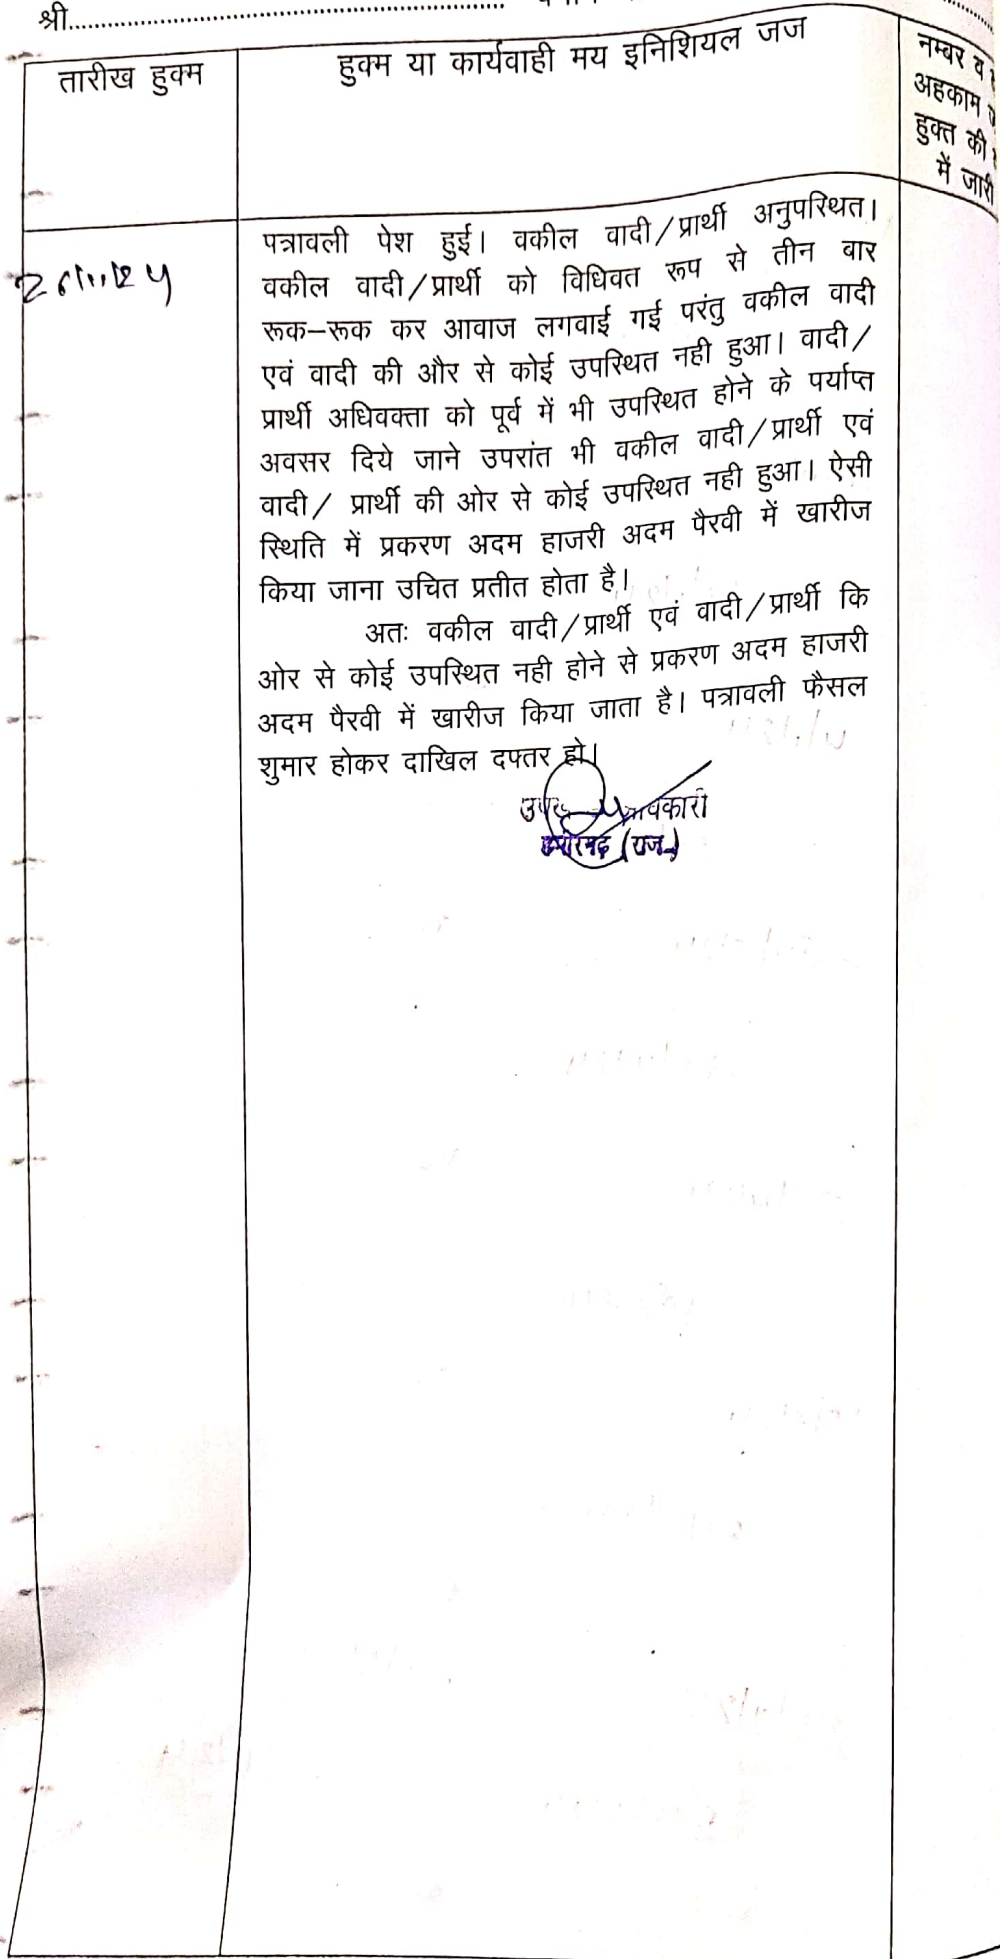 श्री
तारीख हुक्म
हुक्म या कार्यवाही मय इनिशियल जज
नम्बर व
अहकाम
हुक्त की
में जारी
पत्रावली पेश हुई। वकील वादी/प्रार्थी अनुपस्थित।
वकील वादी/प्रार्थी को विधिवत रूप से तीन बार
रूक–रूक कर आवाज लगवाई गई परंतु वकील वादी
एवं वादी की और से कोई उपस्थित नही हुआ। वादी/
प्रार्थी अधिवक्ता को पूर्व में भी उपस्थित होने के पर्याप्त
अवसर दिये जाने उपरांत भी वकील वादी/प्रार्थी एवं
वादी/ प्रार्थी की ओर से कोई उपस्थित नही हुआ। ऐसी
स्थिति में प्रकरण अदम हाजरी अदम पैरवी में खारीज
किया जाना उचित प्रतीत होता है।
अतः वकील वादी/प्रार्थी एवं वादी/प्रार्थी कि
ओर से कोई उपस्थित नही होने से प्रकरण अदम हाजरी
अदम पैरवी में खारीज किया जाता है। पत्रावली फैसल
शुमार होकर दाखिल दफ्तर हो।
(राज.)